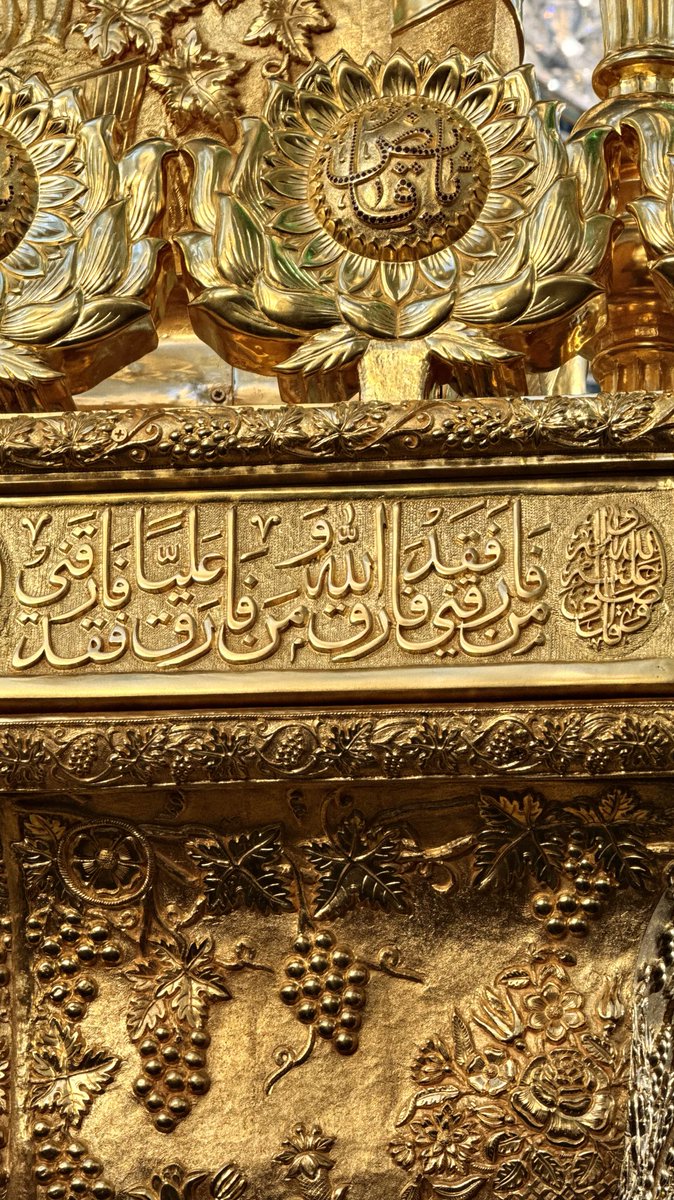 قال صلى الله عليه وآله
من فارقني فقد فارق الله و من فارق عليا فقد فارقني